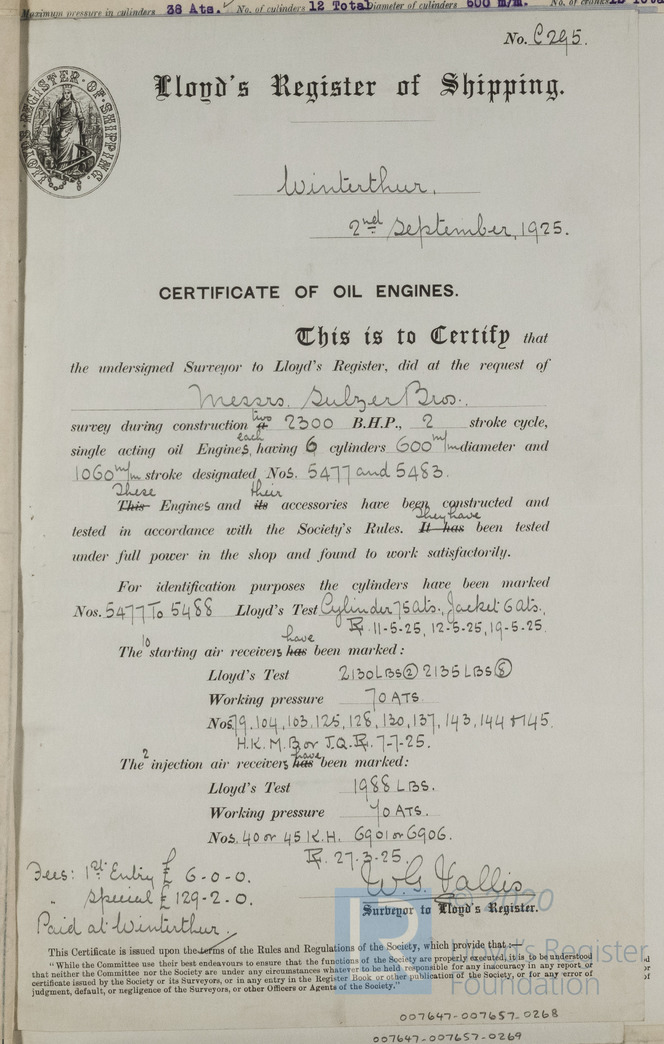 Maximum pressure in cylinders 38 Ats. No. of cylinders 12 Total Diameter of cylinders 600 m/m. No. of cranks
No. C295.
LLOYD'S REGISTER OF SHIPPING
Lloyd's Register of Shipping.
Winterthur,
2nd September, 1925.
CERTIFICATE OF OIL ENGINES.
This is to Certify that
the undersigned Surveyor to Lloyd's Register, did at the request of
Messrs. Sulzer Bros.,
survey during construction a two 2300 B.H.P., 2 stroke cycle,
single acting oil Engines, each having 6 cylinders 600 m/m diameter and
1060 m/m stroke designated Nos. 5477 and 5483.
This These Engines and its their accessories have been constructed and
tested in accordance with the Society's Rules. It has They have been tested
under full power in the shop and found to work satisfactorily.
For identification purposes the cylinders have been marked
Nos. 5477 To 5488 Lloyd's Test Cylinder 75 Ats., Jacket 6 ats.,
LR. 11-5-25, 12-5-25, 19-5-25.
The 10 starting air receivers has have been marked:
Lloyd's Test 2130 LBS (2) 2135 LBS (8)
Working pressure 70 ATS.
Nos. 79, 104, 103, 125, 128, 130, 137, 143, 144 & 145.
H.K. M.B. or J.Q. LR. 7-7-25.
The 2 injection air receivers has have been marked:
Lloyd's Test 1988 LBS.
Working pressure 70 ATS.
Nos. 40 or 45 K.H. 6901 or 6906.
LR. 27-3-25.
Fees: 1st Entry £ 6-0-0.
" Special £ 129-2-0.
Paid at Winterthur.
W.G. Vallis
Surveyor to Lloyd's Register.
© 2020
Lloyd's Register
Foundation
This Certificate is issued upon the terms of the Rules and Regulations of the Society, which provide that :—
"While the Committee use their best endeavours to ensure that the functions of the Society are properly executed, it is to be understood
that neither the Committee nor the Society are under any circumstances whatever to be held responsible for any inaccuracy in any report or
certificate issued by the Society or its Surveyors, or in any entry in the Register Book or other publication of the Society, or for any error of
judgment, default, or negligence of the Surveyors, or other Officers or Agents of the Society."
007647-007657-0268
007647-007657-0269